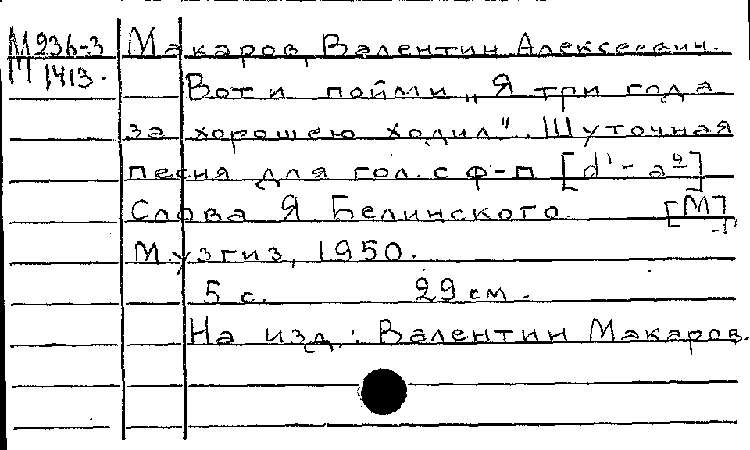 М 936-3 Макаров, Валентин Алексеевич.
М 1413. Вот и пойми „Я три года
за хорошею ходил". Шуточная
песня для гол. с ф-п [d' - a"]
Слова Я Белинского [М]
Музгиз, 1950.
5 с. 29 см.
На изд.: Валентин Макаров.